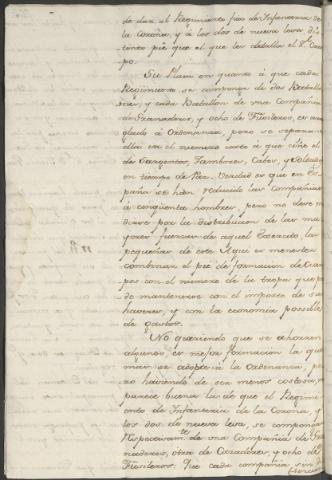 de dar al Regimiento fixo de Infanteria de
la Corona, y á los dos de nueva leva, dis
tinto pie que el que les detallo el Sr. Cres
po.
Su Plan en quanto á que cada
Regimiento se componga de dos Batallo
nes, y cada Batallon de una Compañia
de Granaderos, y ocho de Fusileros, es arre
glado á Ordenanza, pero se separa de
ella en el numero corto á que ciñe el
de Sargentos, Tambores, Cabos, y Soldados
en tiempo de Paz. Verdad es que en Es
paña se han reducido las Compañias
á cinquenta hombres, pero no deve me
dirse por la distribucion de las ma
yores fuerzas de aquel Exercito las
pequeñas de este. Aqui es menester
combinar el pie de formacion de Cuer
pos con el numero de la tropa que pue
de mantenerse con el importe de sus
haveres, y con la economia posible
de gastos.
No queriendo que se ahorren
algunos, es mejor formacion la que
mas se adapte á la Ordenanza, pero
no haviendo de ser menos costosa, me
parece buena la de que el Regimi
ento de Infanteria de la Corona, y
los dos de nueva leva, se compongan
respectivamte. de una Compañia de Gra
naderos, otra de Cazadores, y ocho de
Fusileros. Que cada compañia sin